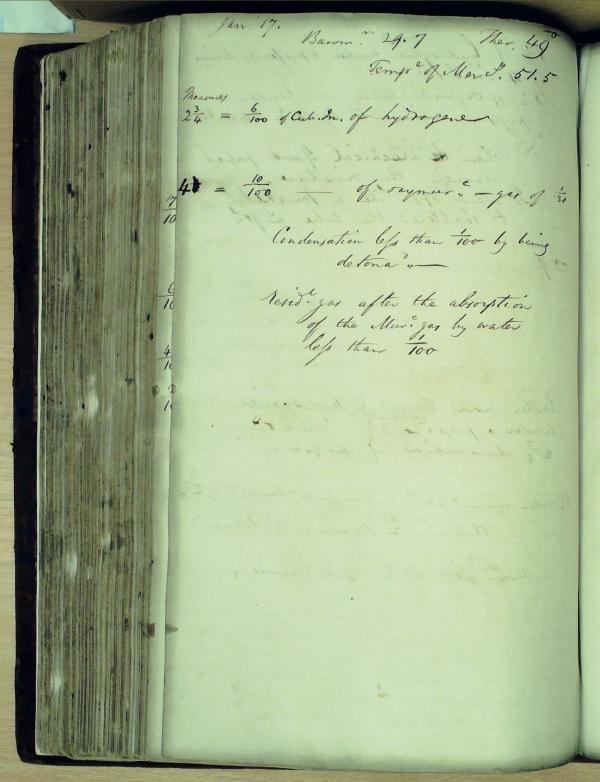 Jan 17.
Barom.r 29.7 Ther. 49°
Temp.r of Mer.l 51.5
Measures
2 3/4 = 6/100 of Cub. In. of hydrogene
4 = 10/100 — of oxymur.c — gas of 1/30
Condensation less than 1/100 by being
detona.d —
resid.l gas after the absorption
of the Mur.c gas by water
less than 1/100
17
10
6
10
4
10